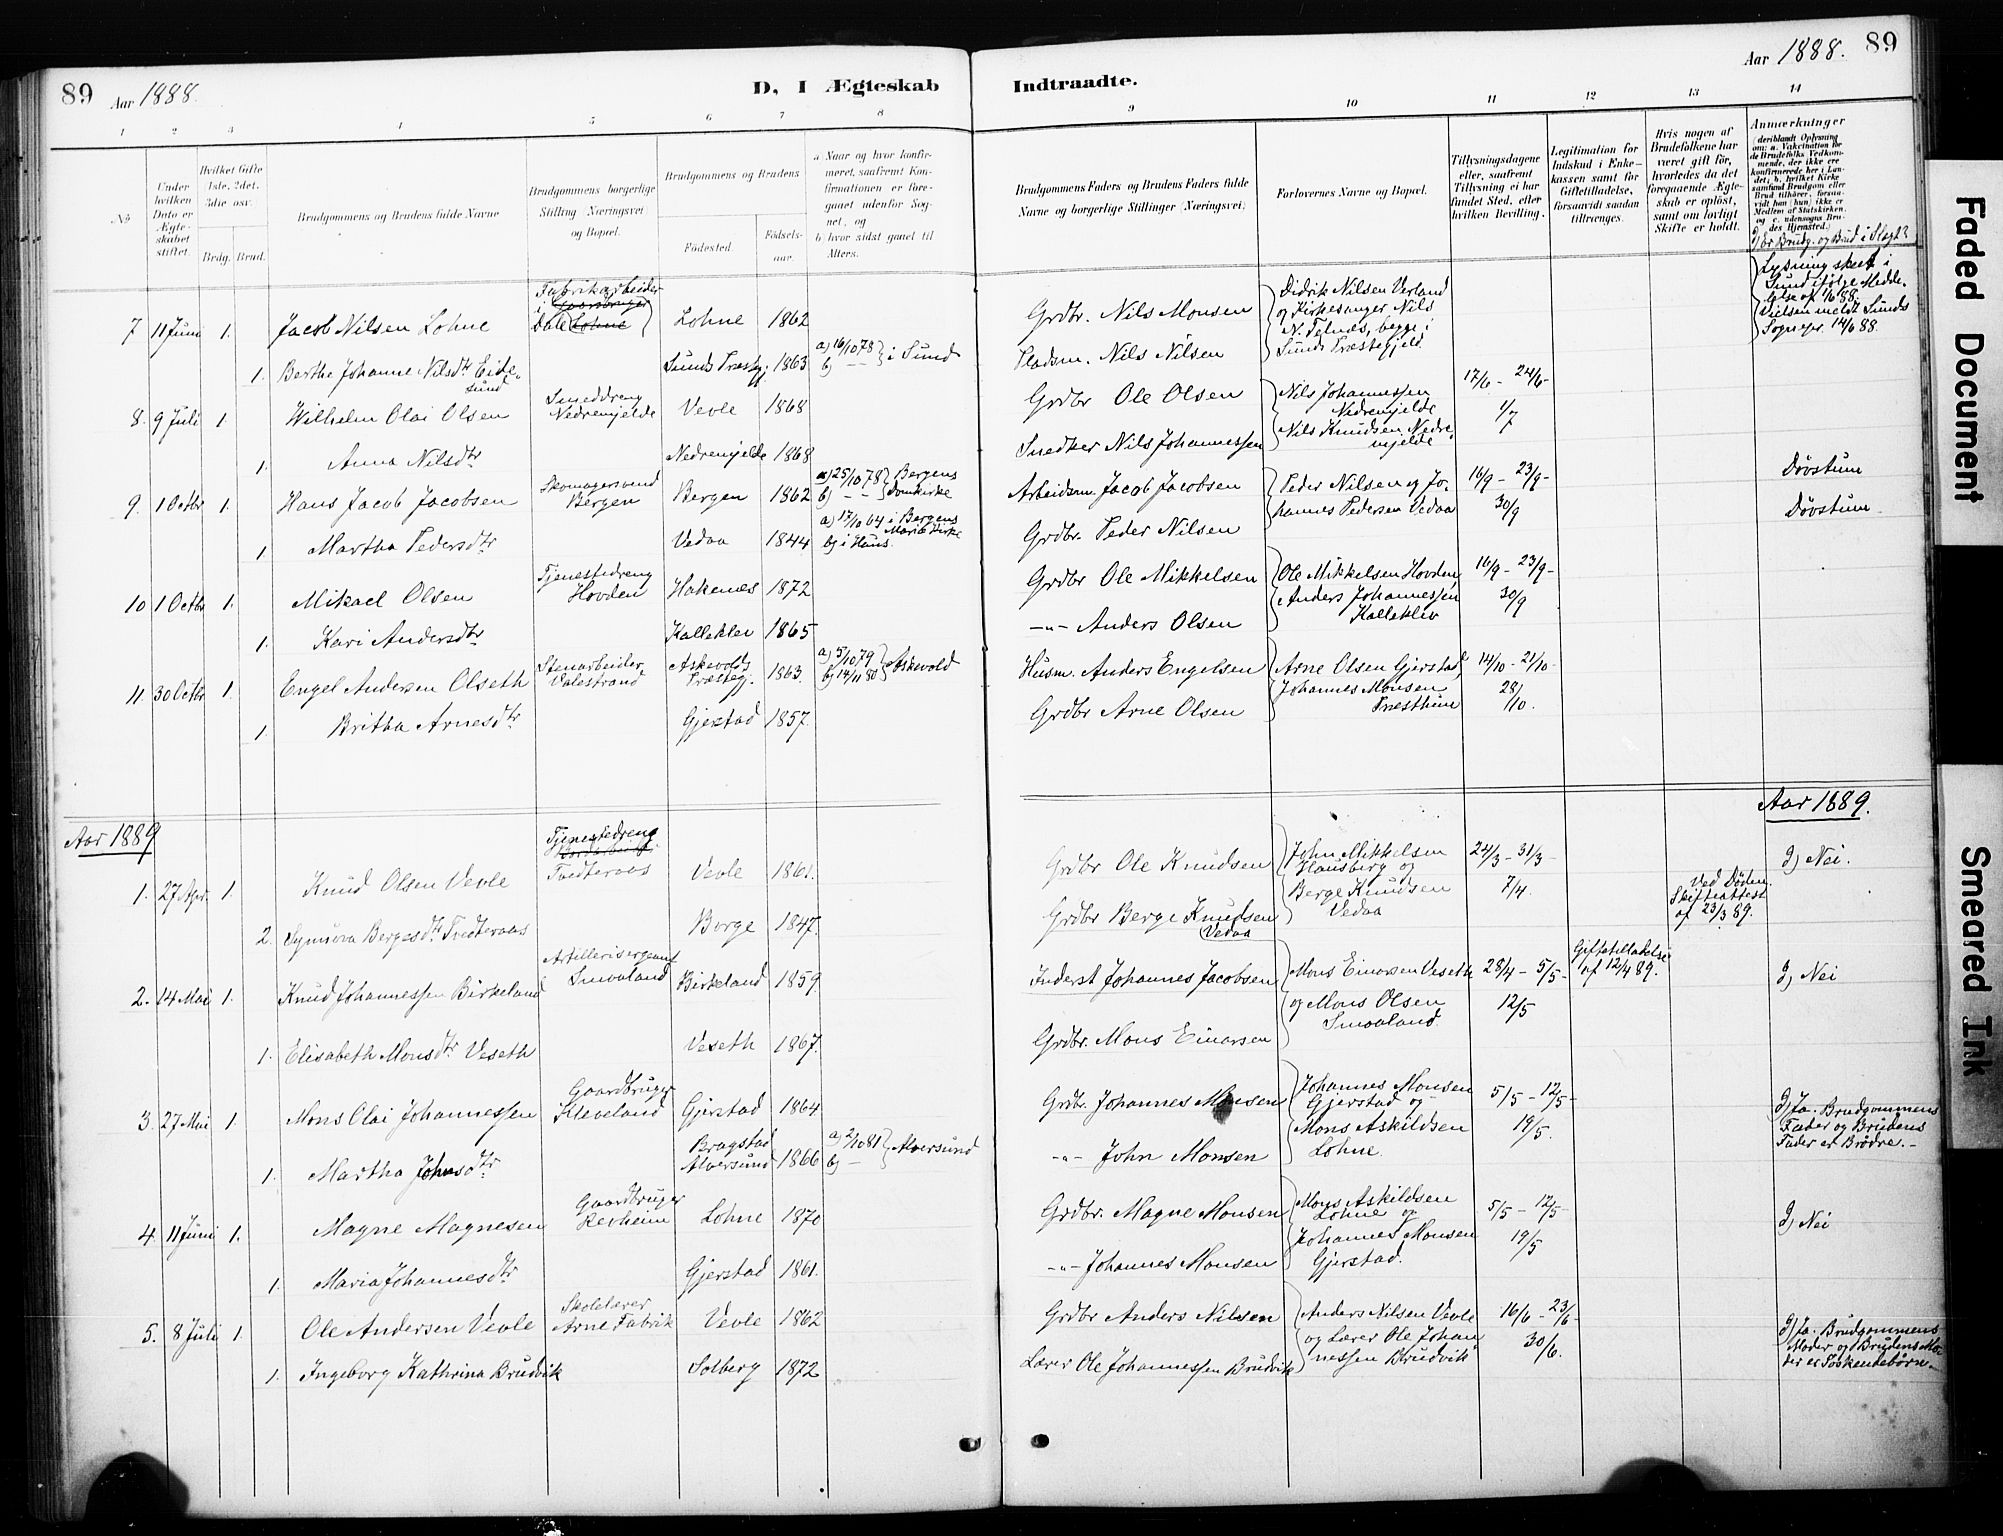 89 Aar 1888.
D, I Ægteskab
Indtraadte.
Aar 1888. 89
1 2 3 4 5 6 7 8 9 10 11 12 13 14
No
Under hvilken Dato er Ægteskabet stiftet.
Hvilket Gifte 1ste, 2det, 3die osv.
Brdg. Brud.
Brudgommens og Brudens fulde Navne
Brudgommens borgerlige Stilling (Næringsvei) og Bopæl.
Brudgommens og Brudens
Fødested. Fødselsaar.
a Naar og hvor konfirmeret, saafremt Konfirmationen er foregaaet udenfor Sognet, og
b hvor sidst ganet til Alters.
Brudgommens Faders og Brudens Faders fulde Navne og borgerlige Stillinger (Næringsvei)
Forlovernes Navne og Bopæl.
Tillysningsdagene eller, saafremt Tillysning ei har fundet Sted, efter hvilken Bevilling.
Legitimation for Indskud i Enkekassen samt for Giftetilladelse, forsaavidt saadan tiltrænges.
Hvis nogen af Brudefolkene har været gift før, hvorledes da det foregaaende Ægteskab er opløst, samt om lovligt Skifte er holdt.
Anmærkninger
(deriblandt Oplysning om: a. Vakcination for de Brudefolks Vedkommende, der ikke ere konfirmerede her i Landet; b. hvilket Kirkesamfund Brudgom eller Brud tilhører, forsaavidt han (hun) ikke er Medlem af Statskirken, og c. udensogns Brudes Hjemsted.)
d, Er Brudg. og Brud i Slægt?
7 11 Juni 1. Jacob Nilsen Lohne
Fabrikarbeider i Dale Gaardbruger Lohne
Lohne 1862
Grdbr. Nils Monsen
Didrik Nilsen Verland og Kirkesanger Nils N. Telnæs, begge i Sunds Præstegjeld.
Lysning skeet i Sund ifølge Meddelelse af 1/6 88. Vielsen meldt Sunds Sognepr. 14/6 88.
1. Berthe Johanne Nilsdtr Eidesund
Sunds Præstgj. 1863
a) 16/10 78 b) - - } i Sund
Pladsm. Nils Nilsen
8. 9 Juli 1. Wilhelm Olai Olsen
Smeddreng Nedremjelde
Vevle 1868
Grdbr Ole Olsen
Nils Johannessen Nedremjelde
Nils Knudsen Nedremjelde
17/6 - 24/6 -
1/7
1. Anna Nilsdtr
Nedremjelde 1868
Snedker Nils Johannessen
9. 1 Octbr 1. Hans Jacob Jacobsen
Skomagersvend Bergen
Bergen 1862
a) 25/10 78 b) - - } Bergens Domkirke
Arbeidsm. Jacob Jacobsen
Peder Nilsen og Johannes Pedersen Vedaa
16/9 - 23/9 -
30/9
Døvstum
1 Martha Pedersdtr
Vedaa 1844
a) 17/10 64 i Bergens Mariakirke
b) i Haus.
Grdbr. Peder Nilsen
Døvstum
10 1 Octbr 1. Mikael Olsen
Tjenestedreng Hovden
Hakenes 1872
Grdbr Ole Mikkelsen
Ole Mikkelsen Hovden,
Anders Johannessen Kalleklev
16/9 - 23/9 -
30/9
1. Kari Andersdtr
Kalleklev 1865
-"- Anders Olsen
11. 30 Octbr 1. Engel Andersen Olseth
Stenarbeider Valestrand
Askevolds Præsteg. 1863.
a) 5/10 79 b) 14/11 80 } Askevold
Husm. Anders Engelsen
Arne Olsen Gjerstad,
Johannes Monsen Præsthun
14/10 - 21/10 -
28/10.
1. Britha Arnesdtr
Gjerstad 1857.
Grdbr Arne Olsen
Aar 1889
Aar 1889.
1. 27 Apr. 1. Knud Olsen Vevle
Tjenestedreng Tvedteraas
Vevle 1861.
Grdbr Ole Knudsen
John Mikkelsen Hausberg og
Berge Knudsen Vedaa
24/3 - 31/3 -
7/4.
d) Nei.
2. Synneva Bergesdtr Tvedteraas
Borge 1847.
Grdbr Berge Knudsen Vedaa
Ved Døden. Skifteattest af 23/3 89.
2. 14 Mai 1. Knud Johannessen Birkeland
Artillerisergeant Smaaland
Birkeland 1859.
Inderst Johannes Jacobsen
Mons Einarsen Veseth
og Mons Olsen Smaaland.
28/4 - 5/5 -
12/5
Giftetilladelse af 12/4 89.
d) Nei
1. Elisabeth Monsdtr Veseth
Veseth 1867.
Grdbr. Mons Einarsen
3. 27 Mai 1. Mons Olai Johannessen
Gaardbruger Kleveland
Gjerstad 1864
Grdbr. Johannes Monsen
Johannes Monsen Gjerstad og
Mons Askildsen Lohne.
5/5 - 12/5 -
19/5.
d) Ja. Brudgommens Fader og Brudens Fader er Brødre. -
1. Martha Johnsdtr
Bragstad Alversund 1866
a) 2/10 81 b) - } Alversund
-"- John Monsen
4. 11 Juni 1. Magne Magnesen
Gaardbruger Revheim
Lohne 1870
Grdbr. Magne Monsen
Mons Askildsen Lohne og
Johannes Monsen Gjerstad.
5/5 - 12/5 -
19/5
d) Nei
1. Maria Johannesdtr
Gjerstad 1861.
-"- Johannes Monsen
5. 8 Juli 1. Ole Andersen Vevle
Skolelærer Arne Fabrik
Vevle 1862
Grdbr Anders Nilsen
Anders Nilsen Vevle
og Lærer Ole Johannessen Brudvik
16/6 - 23/6 -
30/6.
d) Ja. Brudgommens Moder og Brudens Moder er Søskendebørn. -
1. Ingeborg Kathrina Brudvik
Solberg 1872
Lærer Ole Johannessen Brudvik
Faded Document
Smeared Ink